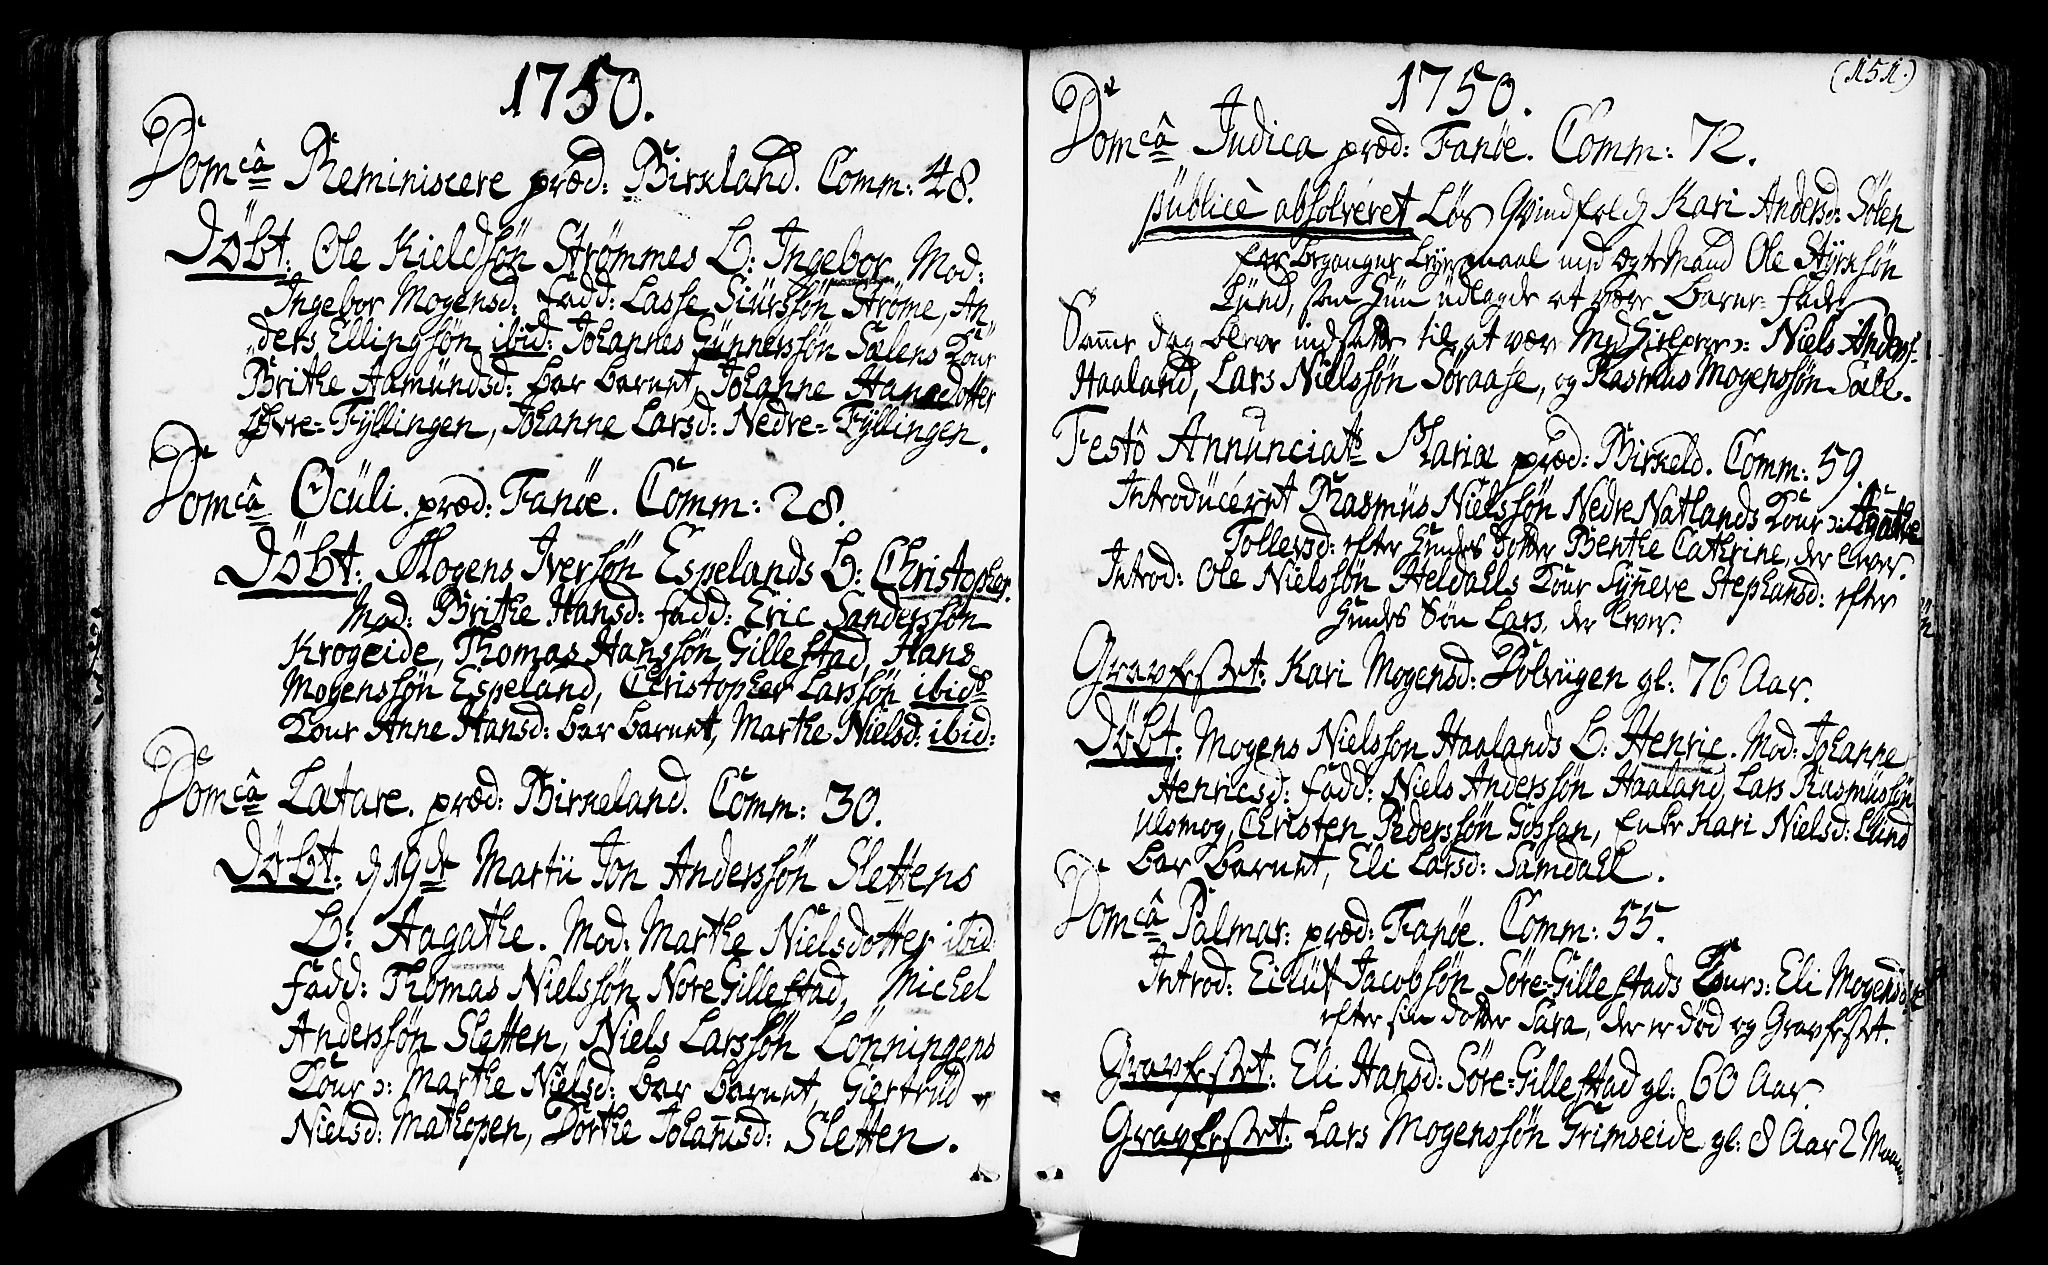 1750.
Dom̅câ Reminiscere præd: Birkland. Comm: 48.
Döbt: Ole Kieldsøn Strømmes B: Ingebor Mod:
Ingebor Mogensd: Fadd: Lasse Siürssøn Strøme, An„
„ders Ellingsøn ibid: Johannes Günnerssøn Sælens Kone
Brithe Aamündsd: bar barnet, Johanne Hansdotter
Øvre-Fyllingen, Johanne Larsd: Nedre-Fyllingen.
Domcâ Oculi. præd: Fanöe. Comm: 28.
Döbt: Mogens Iversøn Espelands B: Christopher.
Mod: Brithe Hansd: fadd: Eric Sanderssøn
Krogeide, Thomas Hanssøn Gillestad, Hans
Mogenssøn Espeland, Christopher Larssøn ibid:
Kone Anne Hansd: bar barnet, Marthe Nielsd: ibid:
Domcâ Lætare. præd: Birkeland. Comm: 30.
Döbt: d 19de Martii Jon Anderssøn Slettens
B: Aagathe. Mod: Marthe Nielsdotter ibid:
Fadd: Thomas Nielssøn Nore Gillestad, Michel
Anderssøn Sletten, Niels Larssøn Lønningens
Kone ɔ: Marthe Nielsd: bar barnet, Giertrüd
Nielsd: Mathopen, Dorthe Johanisd: Sletten.
(151.)
1750.
Domcâ Judica præd: Fanöe. Comm: 72.
püblicè absolveret Løs Qvindfolch Kari Andersd: Sölen
for begangne Leyermaal med ægte Mand Ole Styrksøn
Lünd, som hün üdlagde at være barne-fader
Samme dag bleve indsatte til at være Medhielpere: Niels Anders:
Haaland, Lars Nielssøn Søraase, og Rasmüs Mogenssøn Sæle.
Festô Annunciatis Mariæ præd: Birkeld. Comm: 59.
Introduceret Rasmüs Nielssøn Nedre Natlands Kone ɔ: Agathe
Tollevsd: efter hendes Dotter Benthe Cathrine, der lever.
Introd: Ole Nielssøn Heldalls Kone Synneve Stephansd: efter
hendes Søn Lars, der lever.
Gravfæstet: Kari Mogensd: Dolvigen gl: 76 Aar.
Döbt: Mogens Nielsson Haalands B: Henric. Mod: Johanne
Henricsd: fadd: Niels Anderssøn Haaland, Lars Rasmüssøn
Ulsmog, Christen Pederssøn Gossan, Enke Kari Nielsd: Lünd
bar barnet, Eli Larsd: Samdall.
Domcâ Palmar: præd: Fanöe. Comm: 55.
Introd: Eilüf Jacobsøn Söre-Gillestads Kone ɔ: Eli Mogensd:
efter sin dotter Sara, der er död og Gravfæstet.
Gravfæstet: Eli Hansd: Söre-Gillestad gl: 60 Aar.
Gravfæstet: Lars Mogenssøn Grimseide gl: 8 Aar 2 Maan.